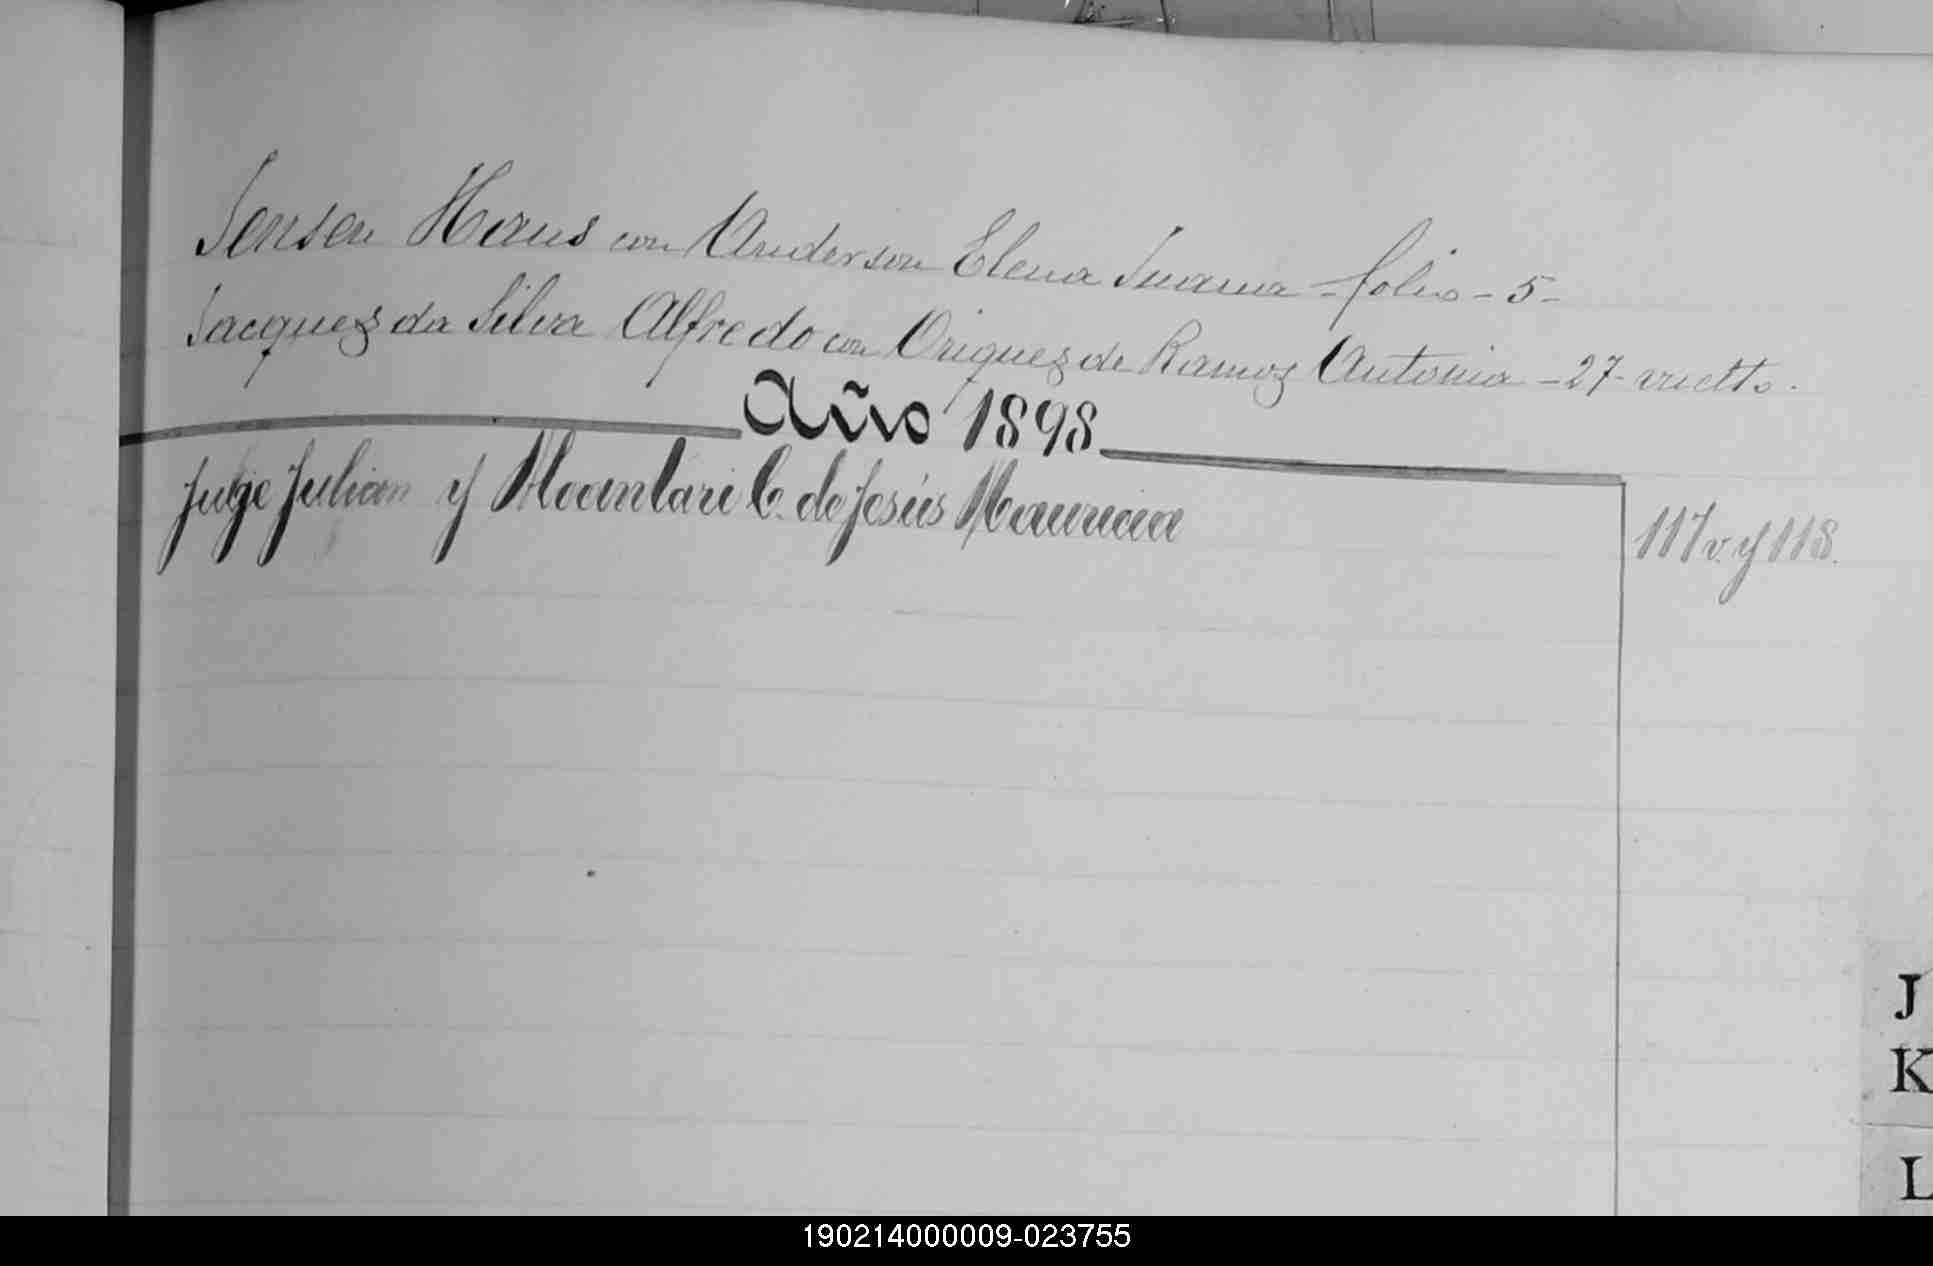 Jensen Hans con Anderson Elena Juana - folio - 5 -
Jacques da Silva Alfredo con Origues de Ramos Antonia - 27 - vuelto.
Año 1898
Juge Julian y C. de Jesús Mauricia 117 v. y 118.
J
K
L
190214000009-023755